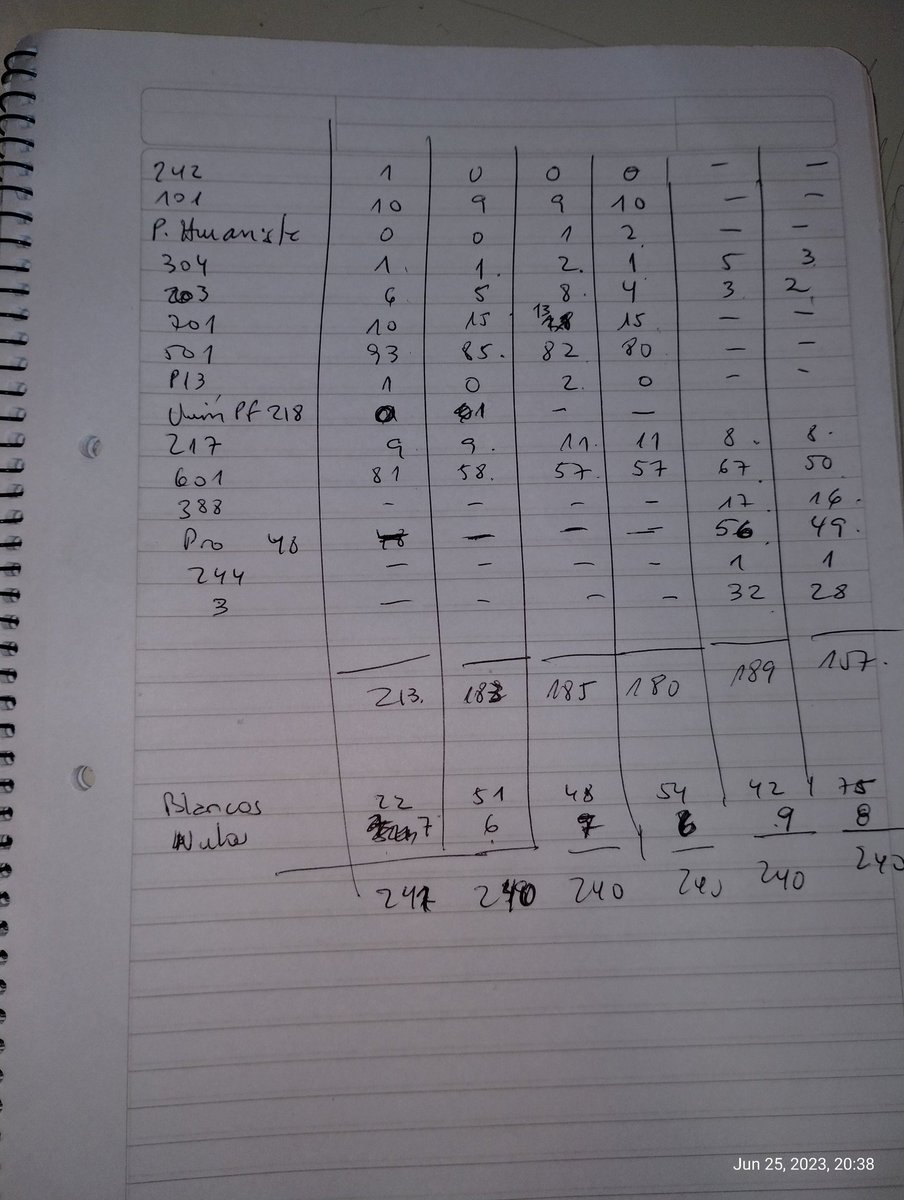 242 1 0 0 0 – –
101 10 9 9 10 – –
P. Humanista 0 0 1 2 – –
304 1. 1. 2. 1 5 3
203 6 5 8. 4 3 2
701 10 15 13 15 – –
501 93 85. 82 80 – –
P13 1 0 2. 0 – –
Unión Pf 218 0 1 – –
217 9 9. 11. 11 8. 8.
601 81 58. 57. 57 67. 50
388 – – – – 17. 16.
Pro 48 – – – 56 49.
244 – – – – 1 1
3 – – – – 32 28
213. 183 185 180 189 157.
Blancos 22 51 48 54 42 75
Nulos 7 6 7 6 9 8
241 240 240 240 240 240
Jun 25, 2023, 20:38